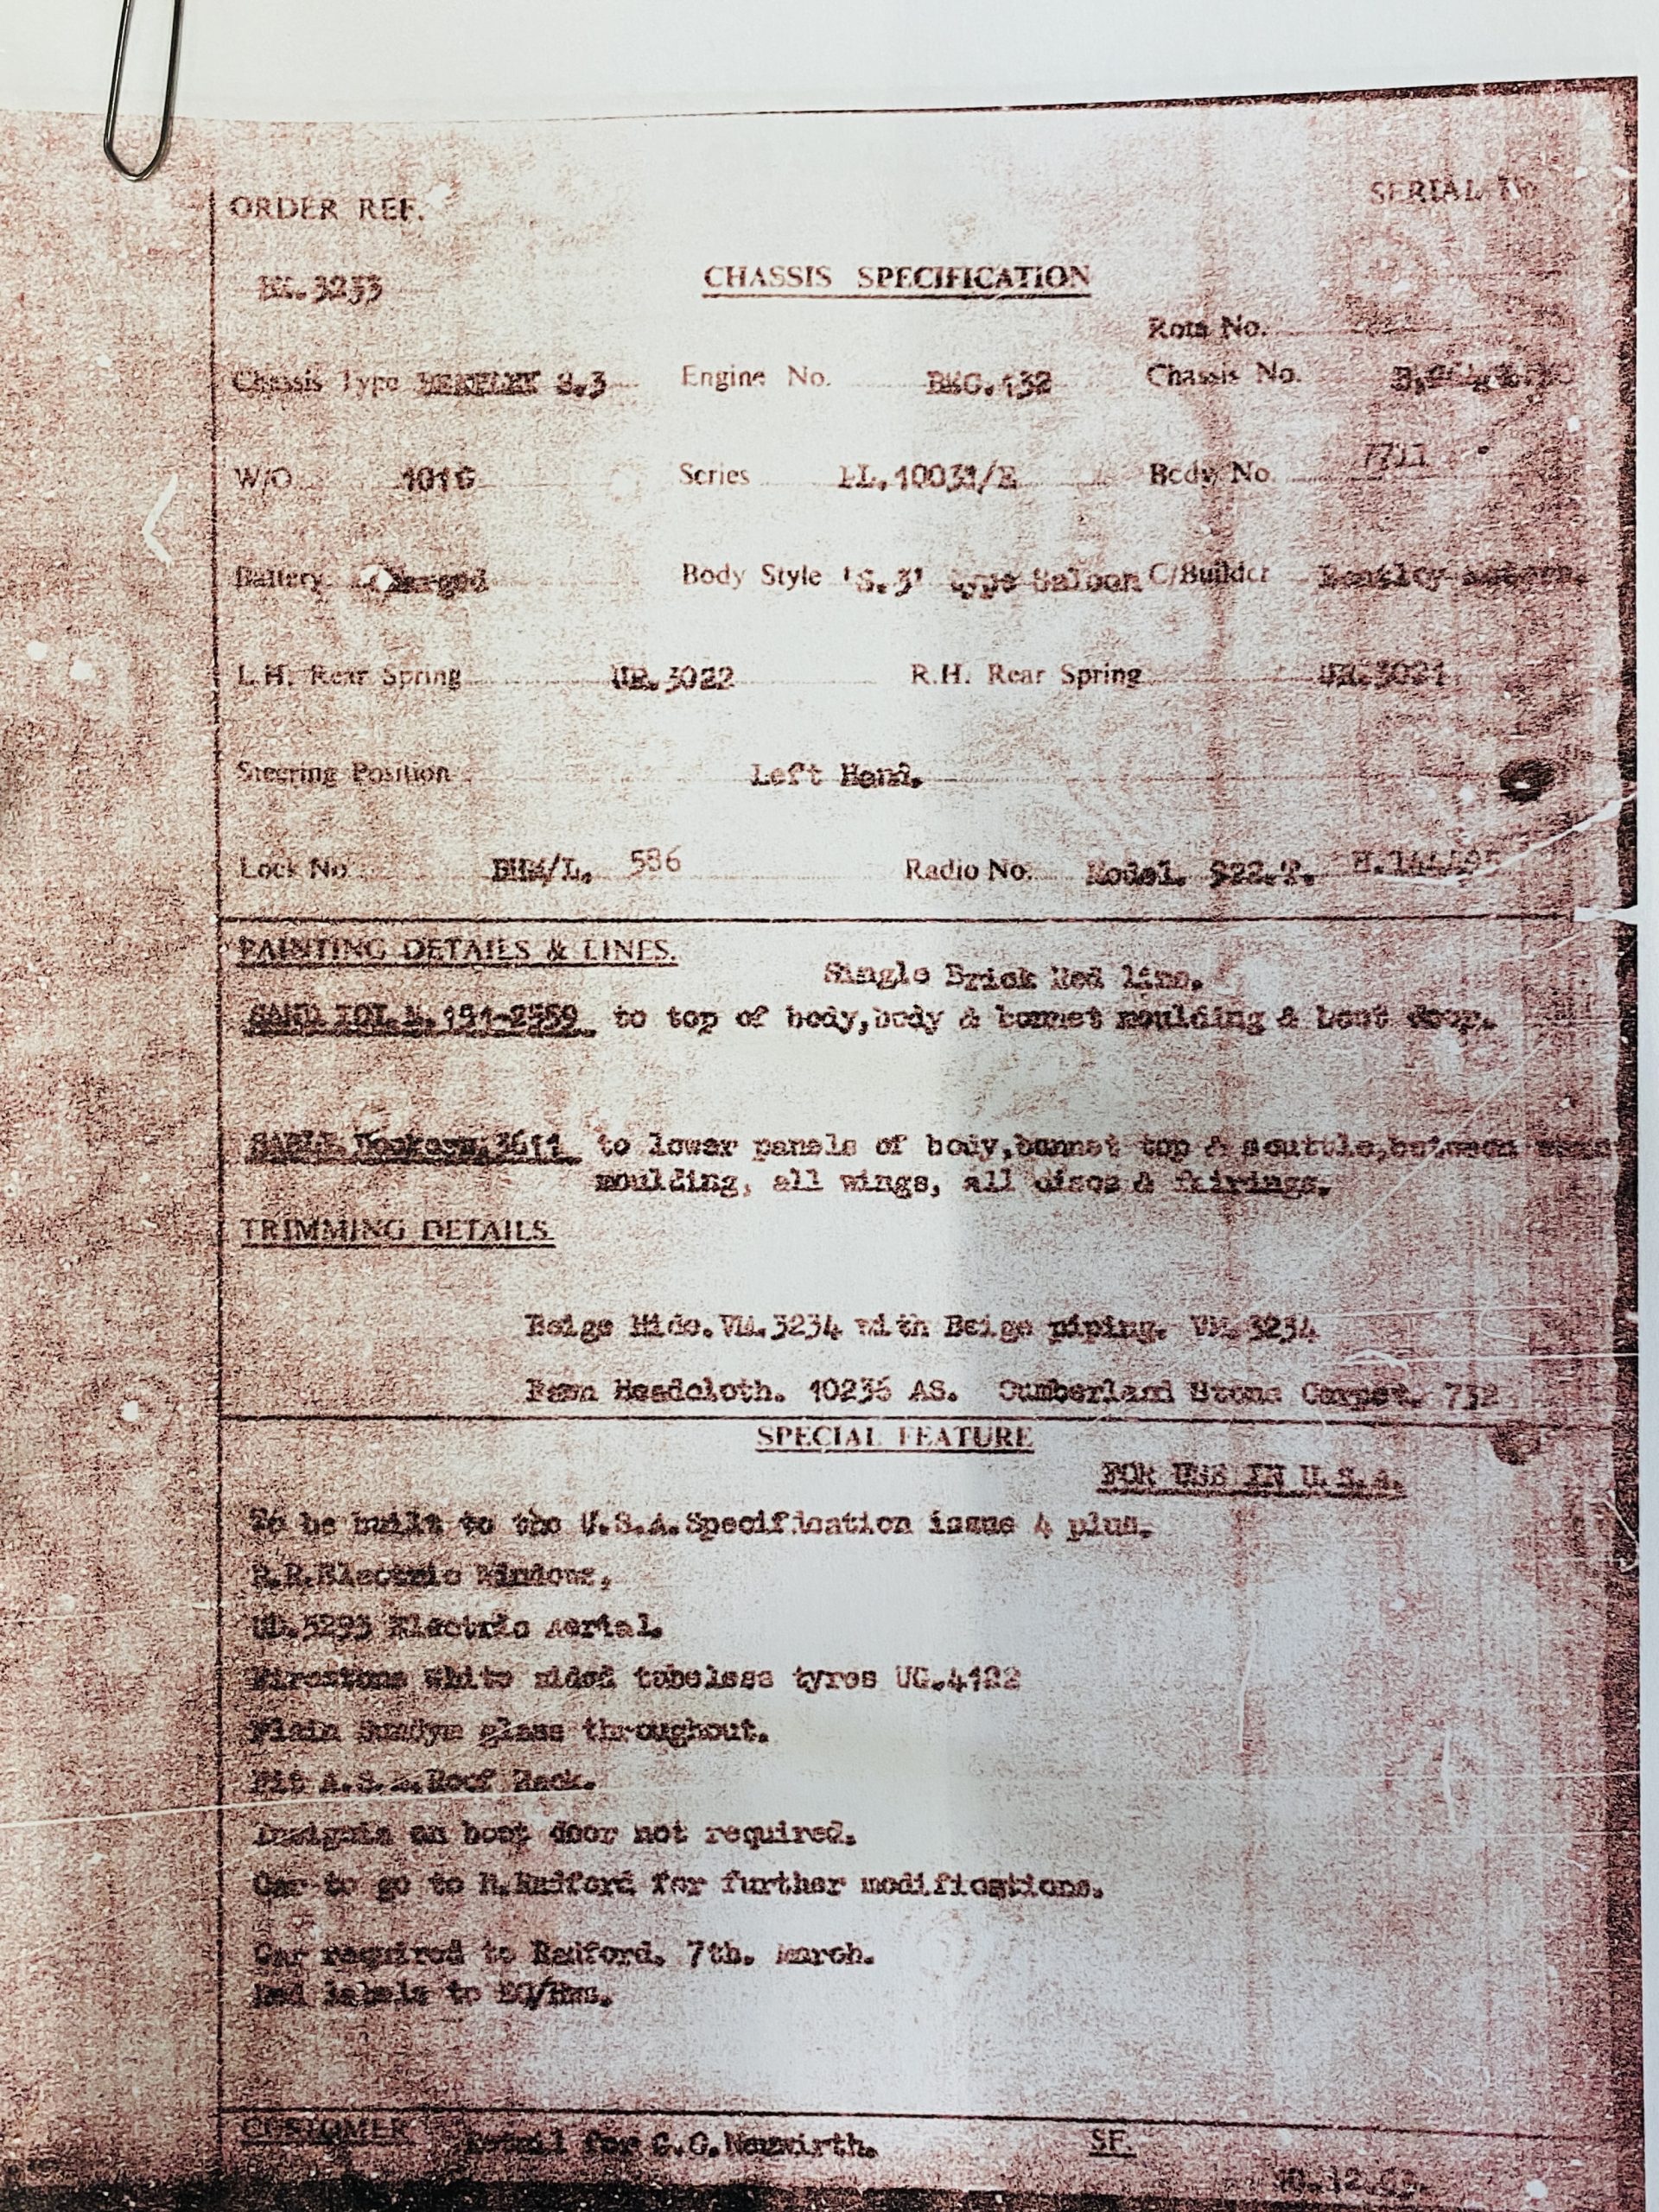 ORDER REF.
SERIAL No
BX.3233
CHASSIS SPECIFICATION
Rota No.
Chassis Type BENTLEY S.3 Engine No. Chassis No.
W/O 1016 Series LL.10031/E Body No. 7711
Battery Charged Body Style 'S.3' type Saloon C/Builder Bentley
L.H. Rear Spring UR.3022 R.H. Rear Spring UR.3021
Steering Position Left Hand.
Lock No. 586 Radio No. Model. 922.T.
PAINTING DETAILS & LINES.
Single Brick Red line.
SAND to top of body,body & bonnet moulding & boot door.
SABLE. to lower panels of body,bonnet top & scuttle,between
moulding, all wings, all discs & fairings.
TRIMMING DETAILS.
Beige Hide.VM.3234 with Beige piping. VM.3234
Fawn Headcloth. 10236 AS. Cumberland Stone Carpet. 732
SPECIAL FEATURE
FOR USE IN U.S.A.
To be built to the U.S.A.Specification issue 4 plus.
R.R.Electric Windows,
UD.5293 Electric Aerial.
Firestone White sided tubeless tyres UG.4122
Plain Sundym glass throughout.
Fit Roof Rack.
Insignia on boot door not required.
Car to go to H.Radford for further modifications.
Car required to Radford, 7th. March.
Red labels to
CUSTOMER Retail for G.C.Neuwirth. SF.